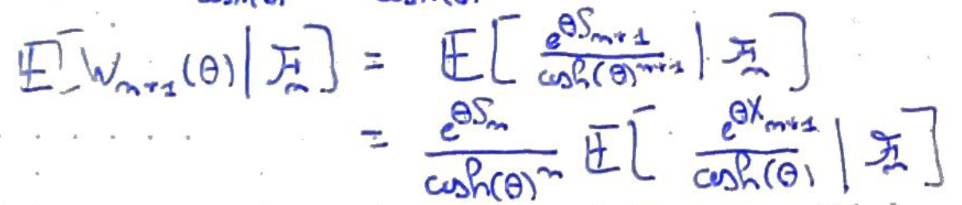 E[W_{n+1}(θ) | F_n] = E[ e^{θS_{n+1}} / cosh(θ)^{n+1} | F_n ]
= e^{θS_n} / cosh(θ)^n E[ e^{θX_{n+1}} / cosh(θ) | F_n ]